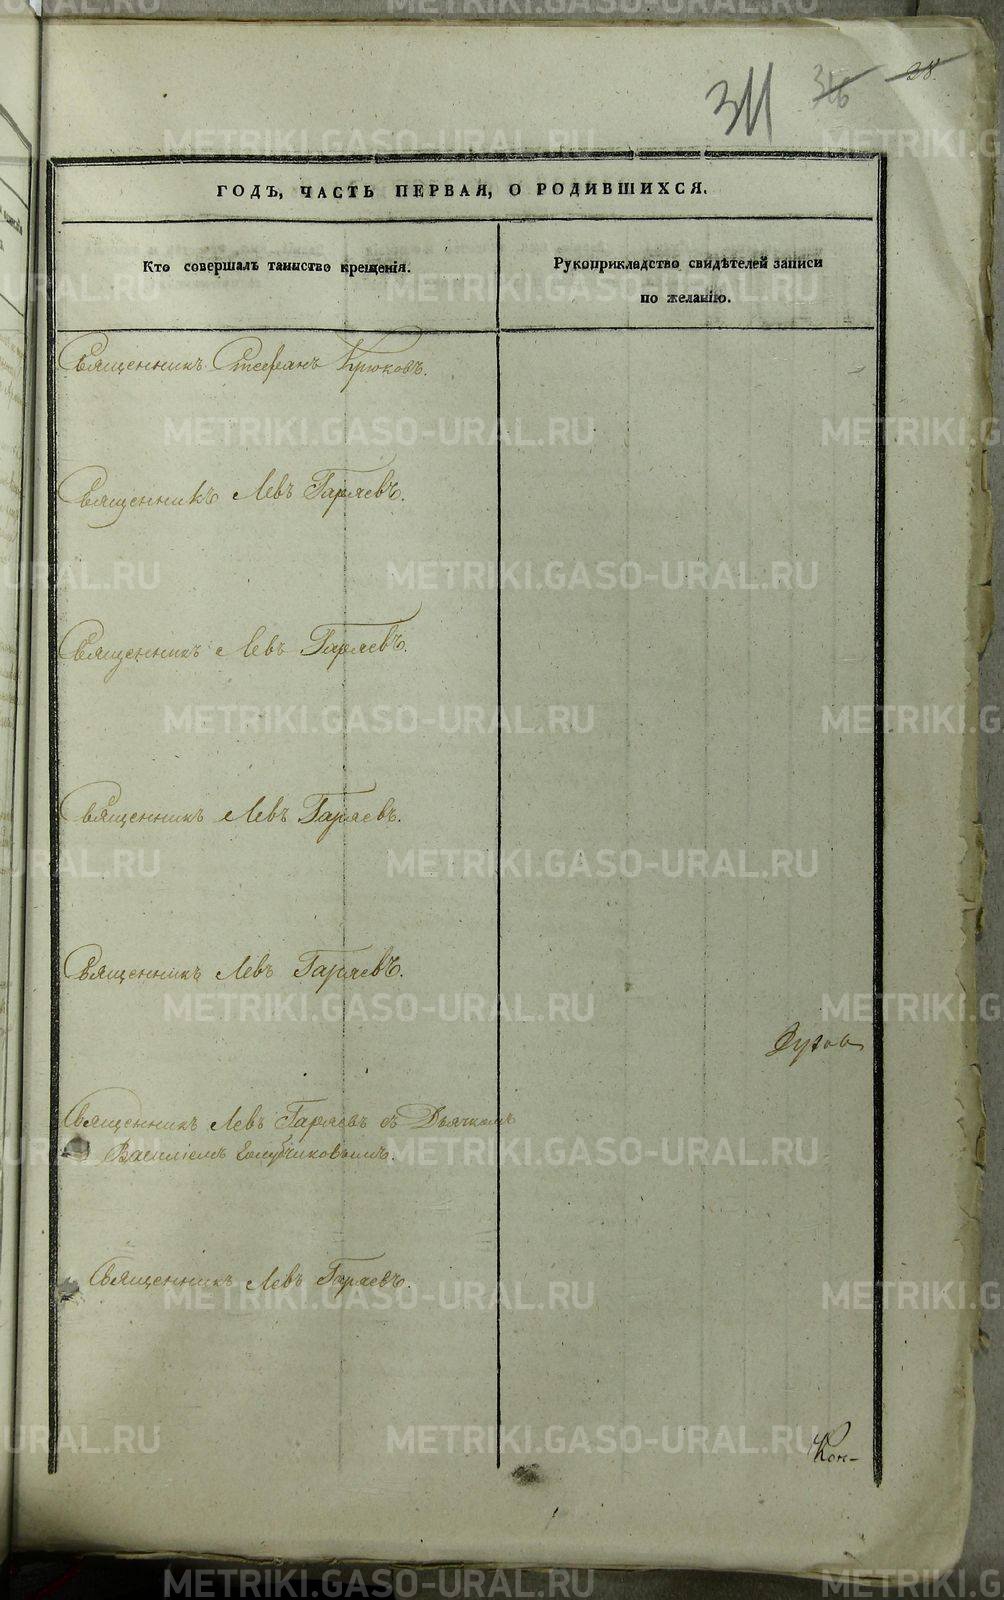 311 28.
ГОДЪ, ЧАСТЬ ПЕРВАЯ, О РОДИВШИХСЯ.
Кто совершалъ таинство крещенія.
Рукоприкладство свидѣтелей записи
по желанію.
Священникъ Стефанъ Крюковъ.
Священникъ Левъ Гаряевъ.
Священникъ Левъ Гаряевъ.
Священникъ Левъ Гаряевъ.
Священникъ Левъ Гаряевъ.
Священникъ Левъ Гаряевъ съ Дьячкомъ
Василіемъ Голубчиковымъ.
Священникъ Левъ Гаряевъ.
Кон-
METRIKI.GASO-URAL.RU